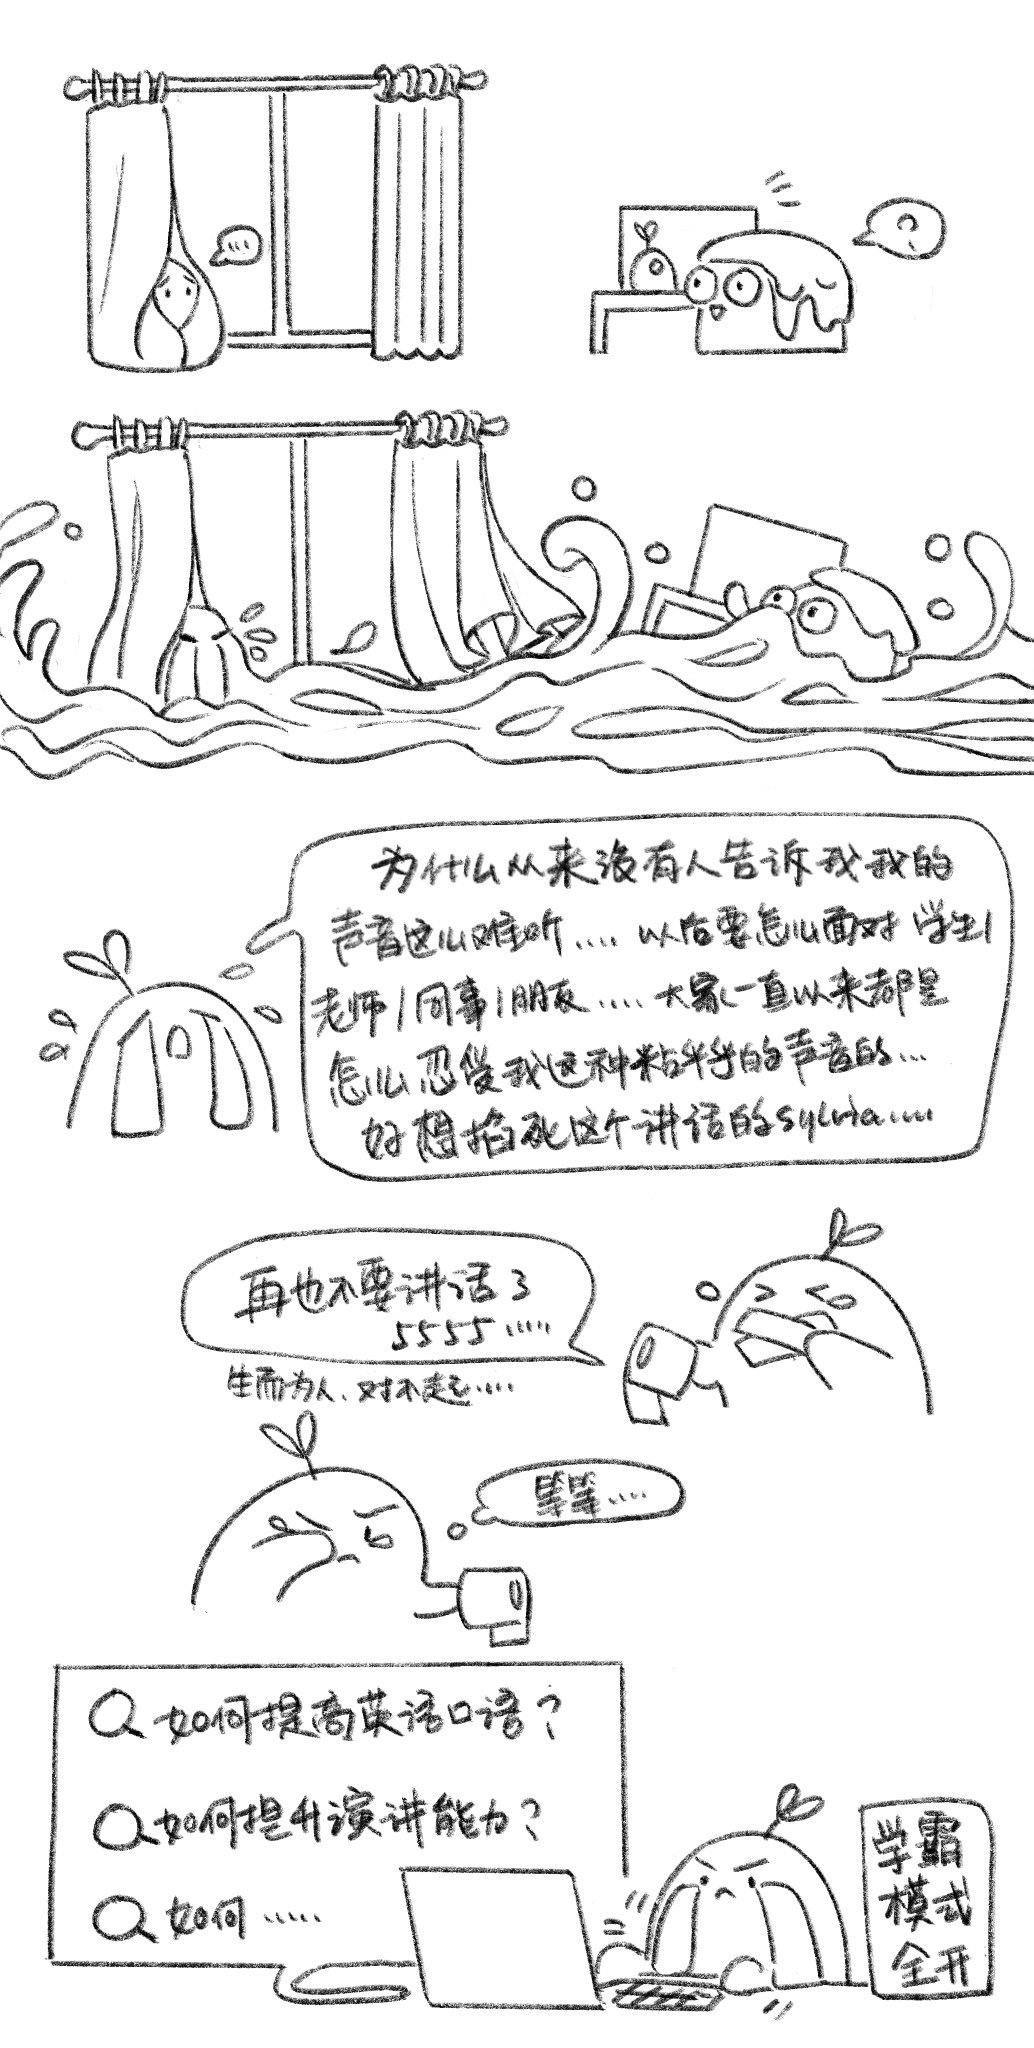 ...
?
为什么从来没有人告诉我我的
声音这么难听.... 以后要怎么面对学生/
老师/同事/朋友.....大家一直以来都是
怎么忍受我这种粘乎乎的声音的...
好想掐死这个讲话的sylvia.....
再也不要讲话了
5555.....
生而为人、对不起....
等等....
如何提高英语口语?
如何提升演讲能力?
如何.....
学霸
模式
全开